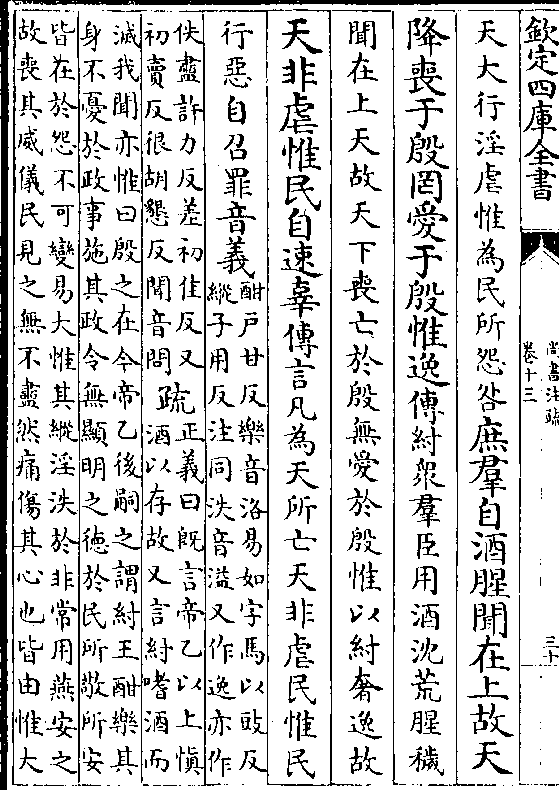 欽定四庫全書
尚書注疏
卷十三
三十
天大行淫虐惟為民所怨咎庶羣自酒腥聞在上故天
降喪于殷罔愛于殷惟逸傳紂衆羣臣用酒沈荒腥穢
聞在上天故天下喪亡於殷無愛於殷惟以紂奢逸故
天非虐惟民自速辜傳言凡為天所亡天非虐民惟民
行惡自召罪音義酣戸甘反樂音洛易如字馬以豉反
縱子用反注同泆音溢又作逸亦作
佚盡許力反差初佳反又
初賣反很胡懇反聞音問疏正義曰既言帝乙以上慎
酒以存故又言紂嗜酒而
滅我聞亦惟曰殷之在今帝乙後嗣之謂紂王酣樂其
身不憂於政事施其政令無顯明之德於民所敬所安
皆在於怨不可變易大惟其縱淫泆於非常用燕安之
故喪其威儀民見之無不盡然痛傷其心也皆由惟大